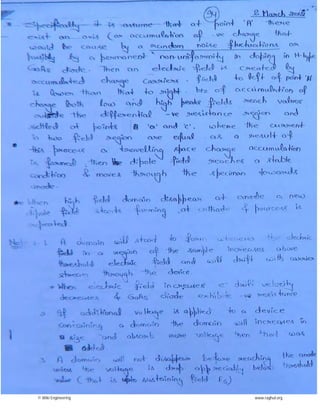 94
2 March 2022
* Specifically it is assume that at point 'A' there
exist an axis (or accumulation of -ve charge that
would be cause by a random noise fluctuations or
possibly by a permanent non-uniformity in doping in N-type
GaAs diode. Then an electric field is created by
accumulated charge carriers. field to left of point 'A'
is lower than that to right. bcz of accumulation of
charge both low and high peaks fields reach values
outside the differential -ve resistance region and
settled at points 'a' and 'c', where the current
in two field region are equal as a result of
this process a travelling space charge accumulation
is formed, then dipole field reaches a stable
condition & moves through the specimen towards
anode.
When high field domain disappears at anode a new
dipole field starts forming at cathode & process is
repeated
Note: 1. A domain will start to form whenever the electric
field in a region of the sample increases above
threshold electric field and will drift with carrier
stream through the device.
* When electric field increases e⁻ drift velocity
decreases & GaAs diode exhibits -ve resistance
2 If additional voltage is applied to a device
containing a domain the domain will increases in
size and absorb more voltage than that was
added.
3. A domain will not disappear before reaching the anode
unless the voltage is drop appreciably below threshold
value (that is sustaining field Es)
© Wiki Engineering
www.raghul.org